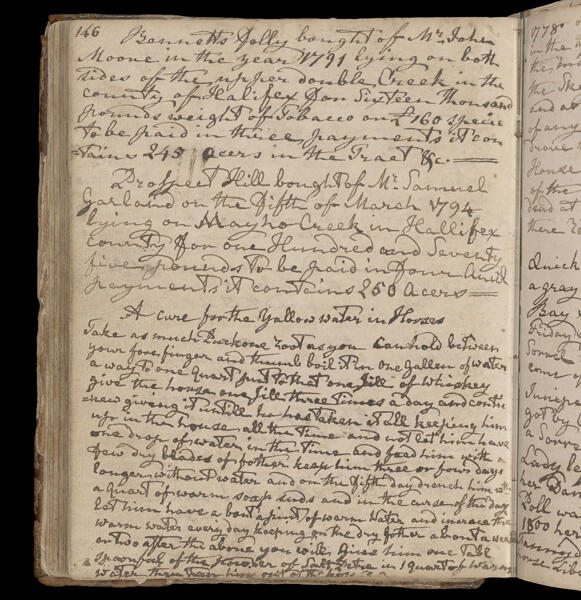 146
Bennetts Folly bought of Mr. John
Moone in the year 1791 lying on both
sides of the upper double Creek in the
County of Halifex for Sixteen thousand
pounds weight of Tobacco or £160 specie
to be paid in three payments it con
=tains 245 acers in the Tract &c.
Prospect Hill bought of Mr. Samuel
Garland on the fifth of March 1794
lying on Mayho Creek in Hallifex
County for one Hundred and Seventy
five pounds to be paid in four
payments it contains 250 acers
A cure for the Yallow water in Horses
Take as much root as you can hold between
your fore finger and thumb boil it in one gallon of water
a way to one quart put to that one Jill of Whiskey
give the horse one Jill three times a day and conti
=new giving it untill he has taken it all keeping him
up in the house all the time and not let him have
one drop of water in the time and feed him with a
few dry blades of fother keep him three or four days
longer without water and on the fifth day drench him with
a quart of warm soap suds and in the curse of the day
let him have a bout a pint of worm Water and increse the
warm water every day keeping on the dry fother about a week
or two after the above you will give him one Table
spoonful of the powder of Salt Petre in 1 quart of warm
water then turn him out of the house
1778
in the
House
of the
dead at
there
Quick
a gray
Bay
Friday
Sorrel
got by
a Sorre
Lady
her Dam
Poll wa
1800 her